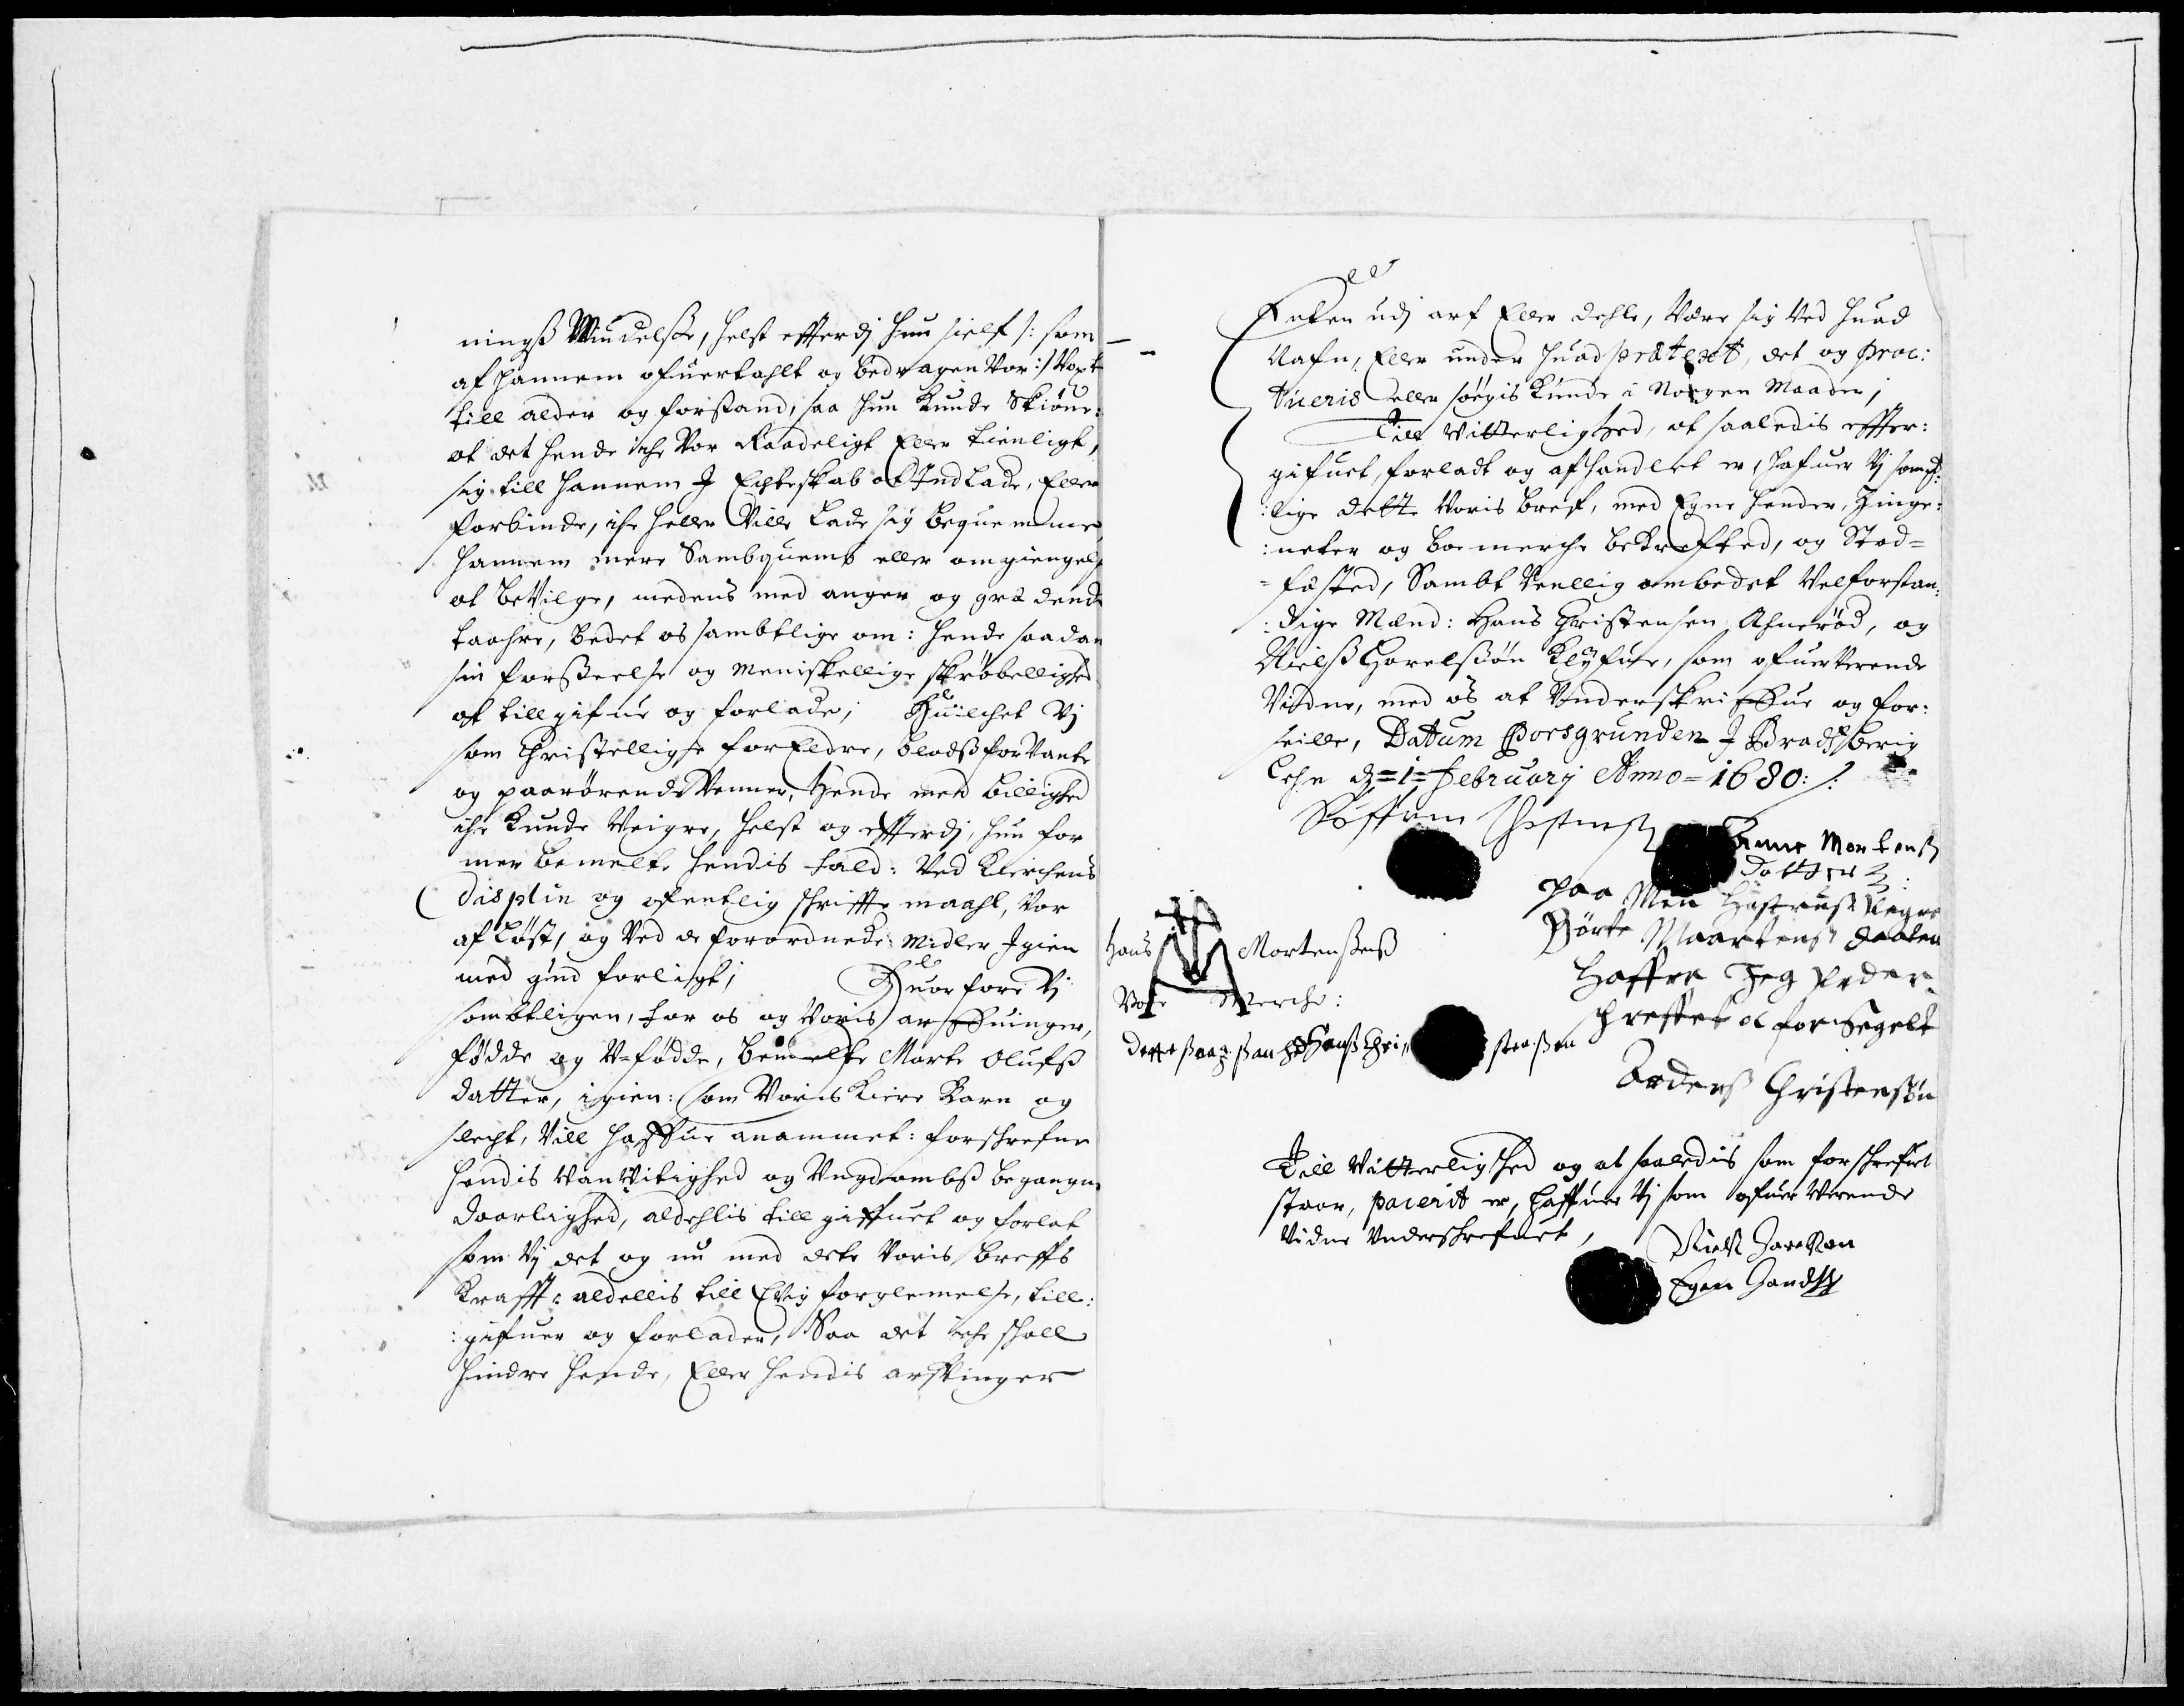 ningß Windelße, helst efferdj hun sielf /: som
af hannem ofuertahlt og bedragen Vor :/ Voxt
till alder og forstand, saa hun Kunde Skiöne:
at det hende iche Vor Raadeligt Eller tienligt,
sig till hannem J Echteskab at Indlade, Eller
forbinde, iche heller Ville Lade sig bequemme
hannem mere Sambquemb eller omgiengelse
at beVilge, medens med anger og grædende
taahre, bedet os sambtlige om: hende saadan
sin forßeelse og Meniskellige skröbellighed
at tillgifue og forlade; Huilchet Vj
som Christelligse forEldre, blodß forVante
og paarörende Venner, Hende med billighed
iche Kunde Veigre, helst og efferdj, hun for
mer bemelte hendis fald: Ved Kierchens
Displin og ofentlig schrifftemaahl, Vor
aflöst, og Ved de forordnede Midler Igien
med gud forligt; Huorfore Vj
sombtligen, for os og Voris arffuinger,
födde og V-födde, bemelte Marte Olufs
datter, igien: som Voris Kiere Barn og
slecht, Vill haffue anammet: forschrefne
hendis VanVitighed og Vngdombß begangne
daarlighed, aldehlis till giffuet og forlat
som Vj det og nu med dete Voris breffs
Krafft: aldellis till Evig forglemelse, till:
:gifuer og forlader, Saa det iche schall
hindre hende, Eller hendis arffinger
Enten udj arf Eller dehle, Være sig Ved huad
Nafn, Eller under huad prætext, det og proc:
tueris eller söegis Kunde i Nogen Maader;
Till Vitterlighed, at saaledis effter:
gifuet, forladt og afhandlet er, hafuer Vj sampt:
:lige dette Voris bref, med Egne hender, Zinge:
:neter og boemerche bekrefted, og Stad=
=fæsted, Sambt Venllig ombedet Velforstan:
:dige Mænd: Hans Christensen Ahnerød, og
Nielß Horelßön Klÿfue, som ofuerVerende
Vidne, med os at Vnderskriffue og for:
seille, Datum Porsgrunden J Bradßberig
Lehn d=1= february Anno=1680:/:
Anne Mortenß
Datter
paa Min Hustruß Vegne
Dörte Maartenß daater
Haffer Jeg Vnder
schreffet oc forSegelt
Anderß Christensön
hans Mortenßeß
Boe Merche:
Hanß Chri,, stenßen
Till Vitterlighed og at saaledis som forschrefuet
staar, pacerit er, haffuer Vj som ofuerVerende
Vidne Vnderschrefuet,
Egen Handt